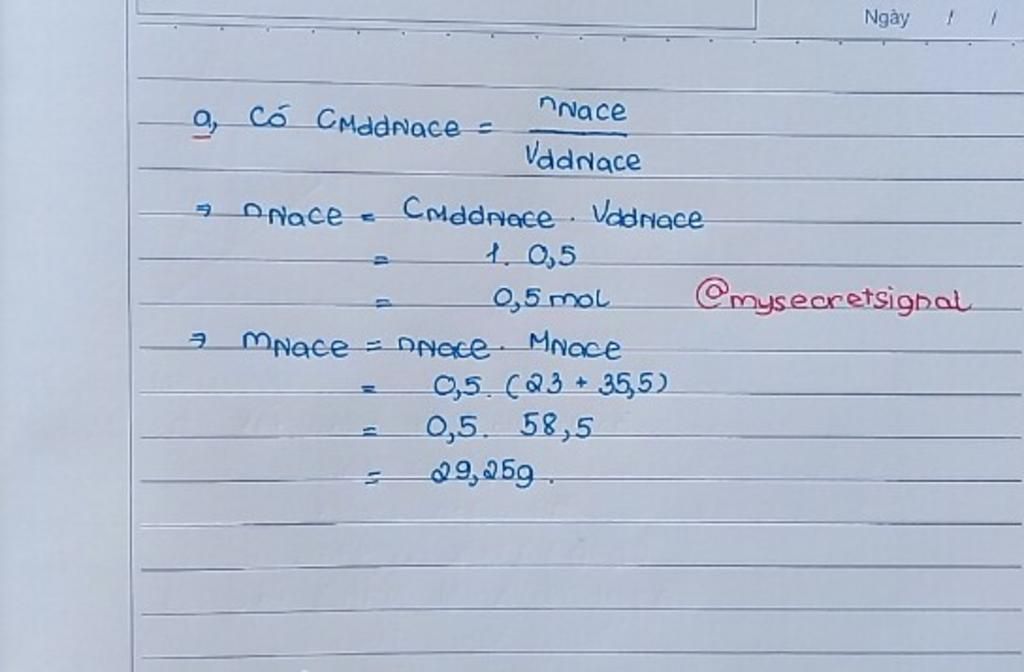 Ngày / /
a, Có CMddNace = nNace / VddNace
⇒ nNace = CMddNace . VddNace
= 1. 0,5
= 0,5 mol @mysecretsignal
⇒ mNace = nNace. MNace
= 0,5. (23 + 35,5)
= 0,5. 58,5
= 29,25g.